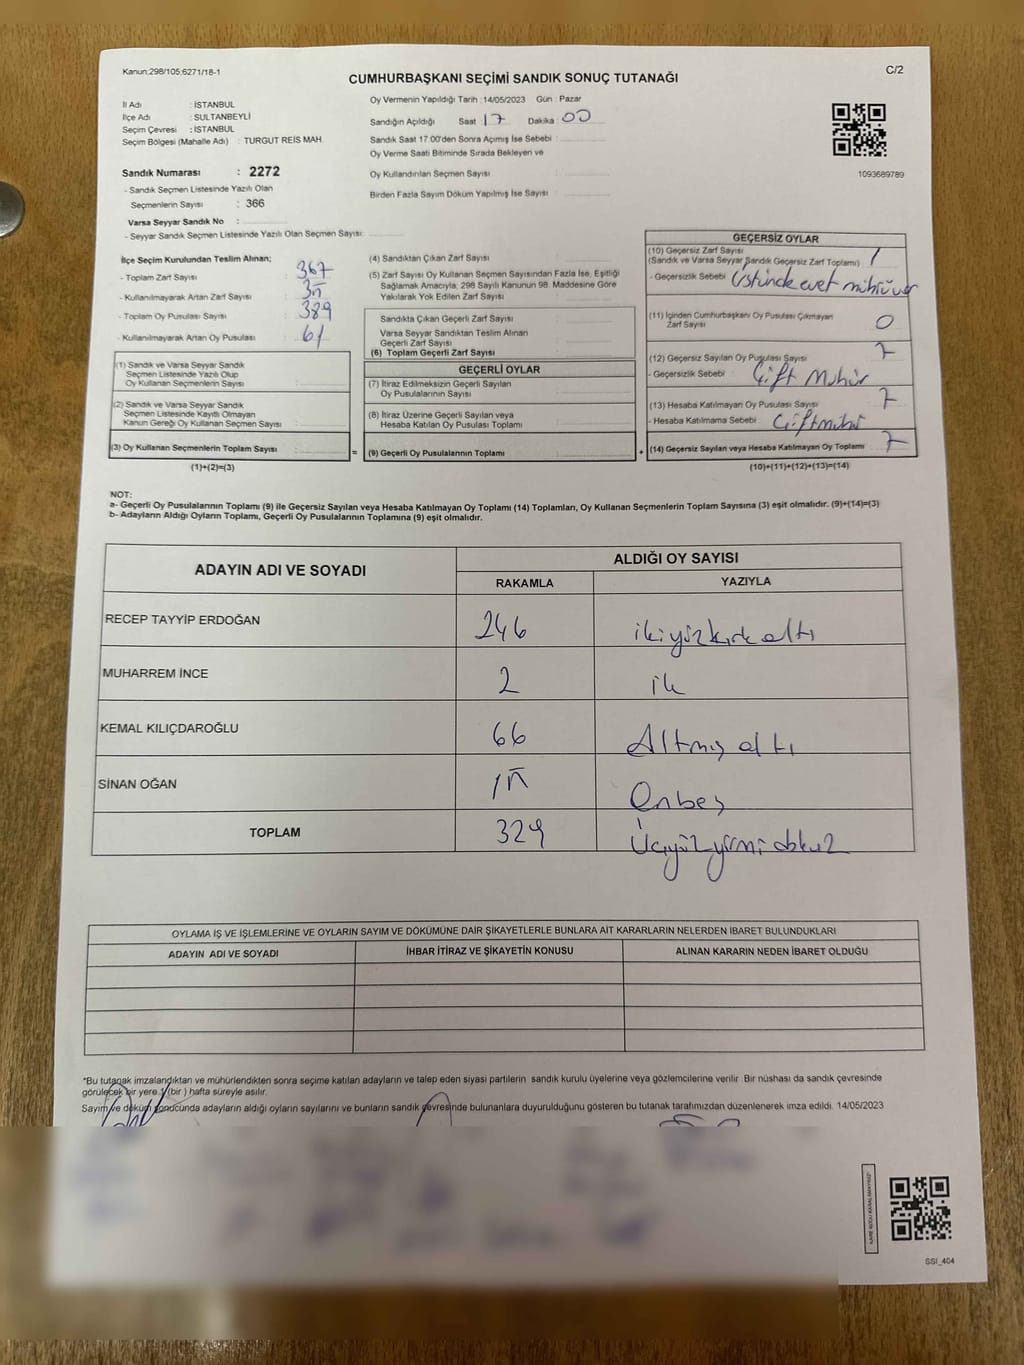 Kanun:298/105;6271/18-1
C/2
CUMHURBAŞKANI SEÇİMİ SANDIK SONUÇ TUTANAĞI
İl Adı : İSTANBUL
İlçe Adı : SULTANBEYLİ
Seçim Çevresi : İSTANBUL
Seçim Bölgesi (Mahalle Adı) : TURGUT REİS MAH.
Sandık Numarası : 2272
- Sandık Seçmen Listesinde Yazılı Olan
Seçmenlerin Sayısı : 366
Varsa Seyyar Sandık No :
- Seyyar Sandık Seçmen Listesinde Yazılı Olan Seçmen Sayısı:
Oy Vermenin Yapıldığı Tarih :14/05/2023 Gün : Pazar
Sandığın Açıldığı Saat : 17 Dakika : 00
Sandık Saat 17.00'den Sonra Açımış İse Sebebi :
Oy Verme Saati Bitiminde Sırada Bekleyen ve
Oy Kullandırılan Seçmen Sayısı :
Birden Fazla Sayım Döküm Yapılmış İse Sayısı :
1093689789
İlçe Seçim Kurulundan Teslim Alınan;
- Toplam Zarf Sayısı : 367
- Kullanılmayarak Artan Zarf Sayısı :
- Toplam Oy Pusulası Sayısı : 389
- Kullanılmayarak Artan Oy Pusulası : 61
(1) Sandık ve Varsa Seyyar Sandık
Seçmen Listesinde Yazılı Olup
Oy Kullanan Seçmenlerin Sayısı :
(2) Sandık ve Varsa Seyyar Sandık
Seçmen Listesinde Kayıtlı Olmayan
Kanun Gereği Oy Kullanan Seçmen Sayısı :
(3) Oy Kullanan Seçmenlerin Toplam Sayısı : =
(1)+(2)=(3)
(4) Sandıktan Çıkan Zarf Sayısı :
(5) Zarf Sayısı Oy Kullanan Seçmen Sayısından Fazla İse, Eşitliği
Sağlamak Amacıyla; 298 Sayılı Kanunun 98. Maddesine Göre
Yakılarak Yok Edilen Zarf Sayısı :
Sandıkta Çıkan Geçerli Zarf Sayısı :
Varsa Seyyar Sandıktan Teslim Alınan
Geçerli Zarf Sayısı :
(6) Toplam Geçerli Zarf Sayısı :
GEÇERLİ OYLAR
(7) İtiraz Edilmeksizin Geçerli Sayılan
Oy Pusulalarının Sayısı :
(8) İtiraz Üzerine Geçerli Sayılan veya
Hesaba Katılan Oy Pusulası Toplamı :
(9) Geçerli Oy Pusulalarının Toplamı : +
GEÇERSİZ OYLAR
(10) Geçersiz Zarf Sayısı
(Sandık ve Varsa Seyyar Sandık Geçersiz Zarf Toplamı) : 1
- Geçersizlik Sebebi : Üstünde evet mührü var
(11) İçinden Cumhurbaşkanı Oy Pusulası Çıkmayan
Zarf Sayısı : 0
(12) Geçersiz Sayılan Oy Pusulası Sayısı : 7
- Geçersizlik Sebebi : Çift Mühür
(13) Hesaba Katılmayan Oy Pusulası Sayısı : 7
- Hesaba Katılmama Sebebi : Çift mühür
(14) Geçersiz Sayılan veya Hesaba Katılmayan Oy Toplamı : 7
(10)+(11)+(12)+(13)=(14)
NOT:
a- Geçerli Oy Pusulalarının Toplamı (9) ile Geçersiz Sayılan veya Hesaba Katılmayan Oy Toplamı (14) Toplamları, Oy Kullanan Seçmenlerin Toplam Sayısına (3) eşit olmalıdır. (9)+(14)=(3)
b- Adayların Aldığı Oyların Toplamı, Geçerli Oy Pusulalarının Toplamına (9) eşit olmalıdır.
ADAYIN ADI VE SOYADI
ALDIĞI OY SAYISI
RAKAMLA YAZIYLA
RECEP TAYYİP ERDOĞAN 246 ikiyüzkırk altı
MUHARREM İNCE 2 iki
KEMAL KILIÇDAROĞLU 66 Altmış altı
SİNAN OĞAN 15 Onbeş
TOPLAM 329 Üçyüzyirmi dokuz
OYLAMA İŞ VE İŞLEMLERİNE VE OYLARIN SAYIM VE DÖKÜMÜNE DAİR ŞİKAYETLERLE BUNLARA AİT KARARLARIN NELERDEN İBARET BULUNDUKLARI
ADAYIN ADI VE SOYADI İHBAR İTİRAZ VE ŞİKAYETİN KONUSU ALINAN KARARIN NEDEN İBARET OLDUĞU
*Bu tutanak imzalandıktan ve mühürlendikten sonra seçime katılan adayların ve talep eden siyasi partilerin sandık kurulu üyelerine veya gözlemcilerine verilir. Bir nüshası da sandık çevresinde
görülecek bir yere 1 (bir ) hafta süreyle asılır.
Sayım ve döküm sonucunda adayların aldığı oyların sayılarını ve bunların sandık çevresinde bulunanlara duyurulduğunu gösteren bu tutanak tarafımızdan düzenlenerek imza edildi. 14/05/2023
SSI_404